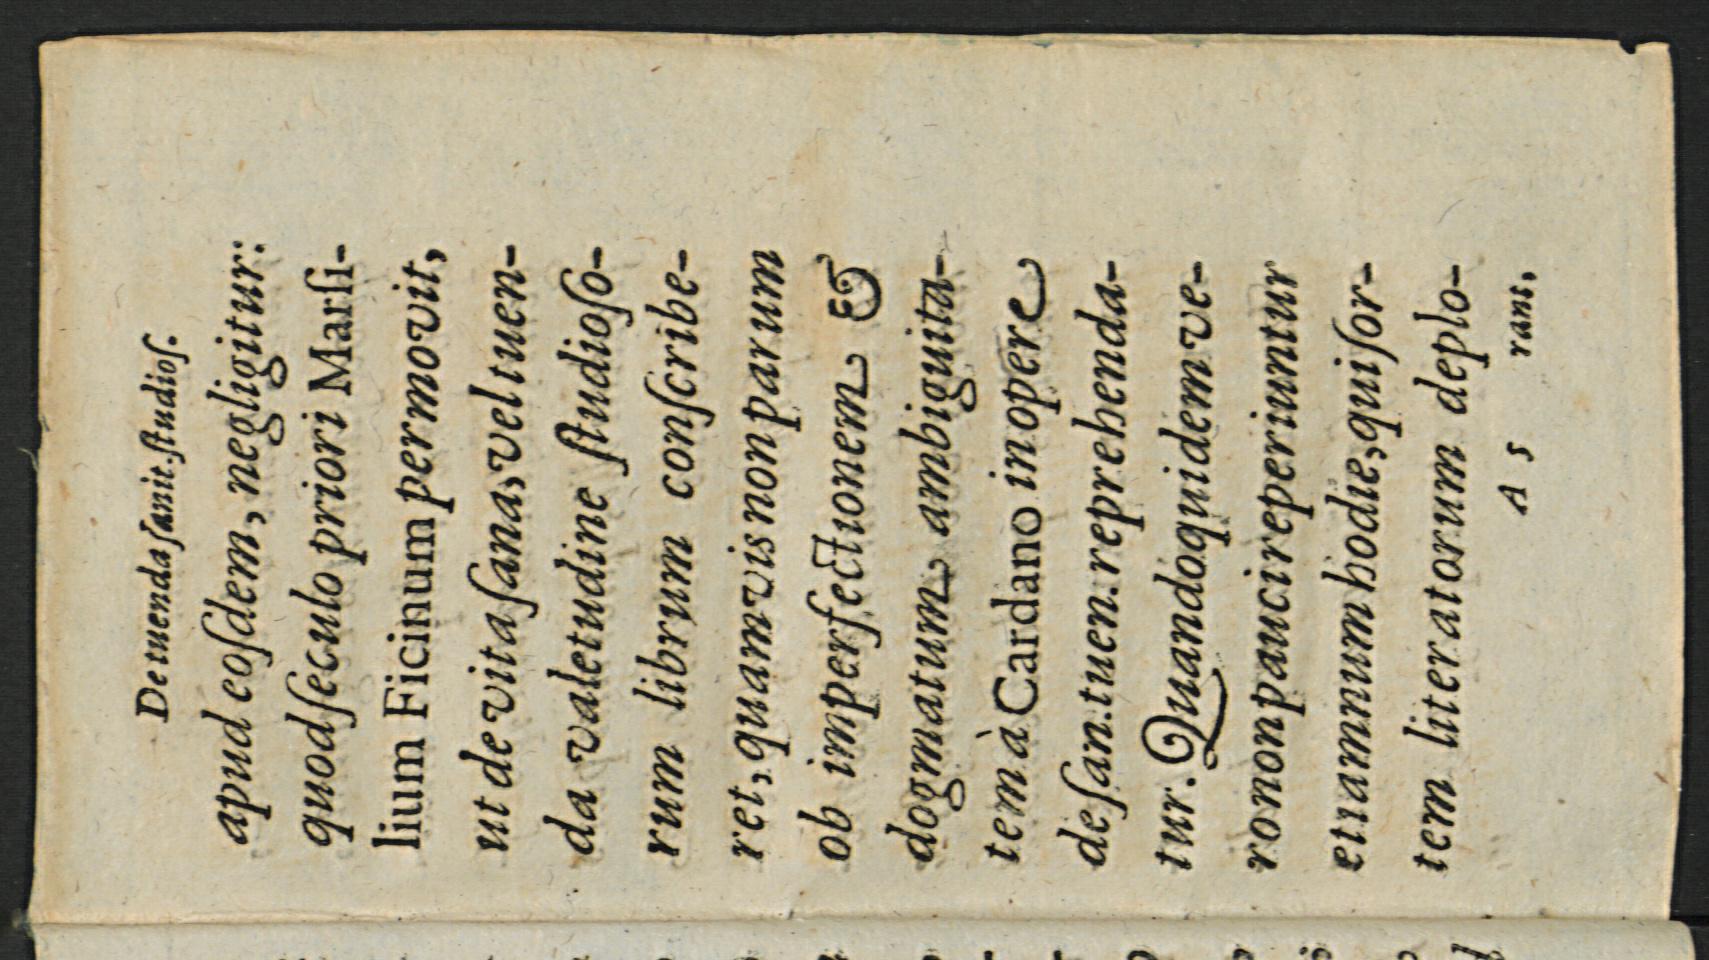 De tuenda ſanit. ſtudioſ.
apud eoſdem, negligitur:
quod ſeculo priori Marſi-
lium Ficinum permovit,
ut de vita ſana, vel tuen-
da valetudine ſtudioſo-
rum librum conſcribe-
ret, quamvis non parum
ob imperfectionem &
dogmatum ambiguita-
tem à Cardano in opere
de ſan. tuen. reprehenda-
tur. Quandoquidem ve-
ro non pauci reperiuntur
etiamnum hodie, qui ſor-
tem literatorum deplo-
A 5 rant,